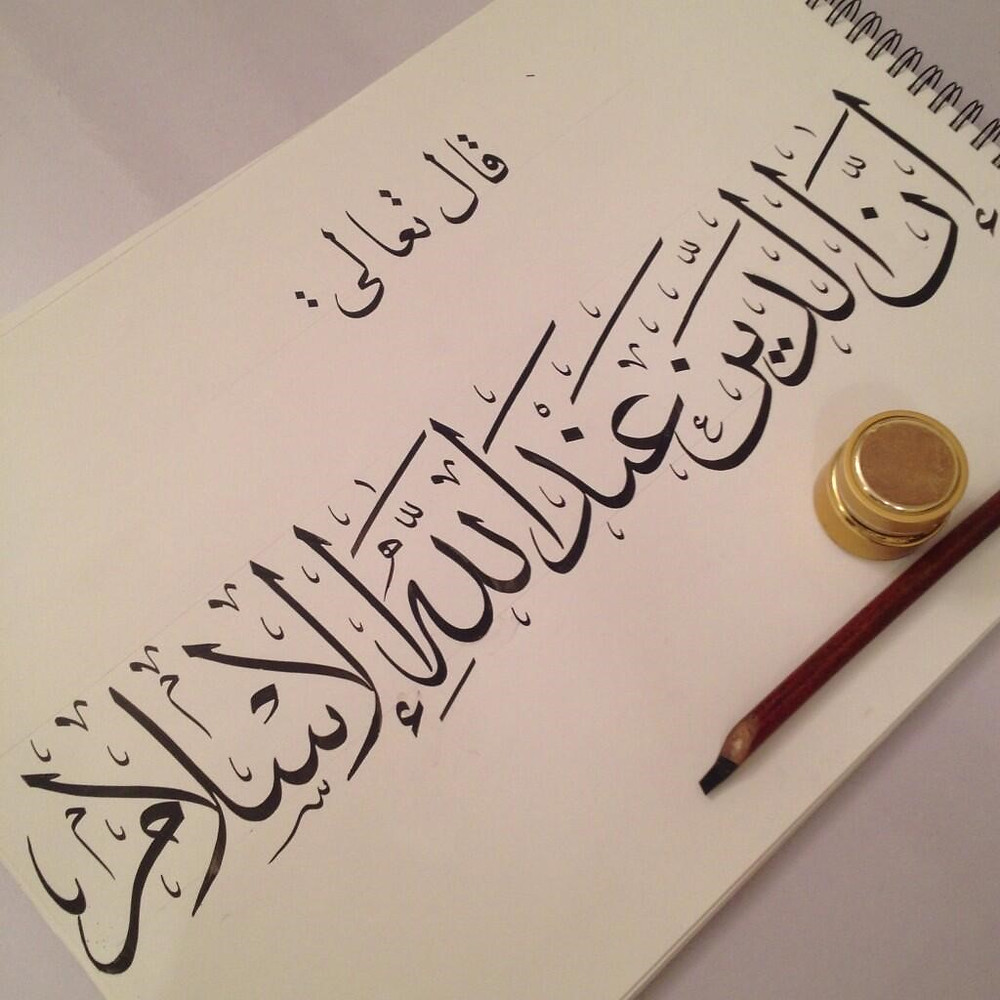 قال تعالى :
إنَّ الدِّينَ عِندَ اللَّهِ الإِسْلَامُ